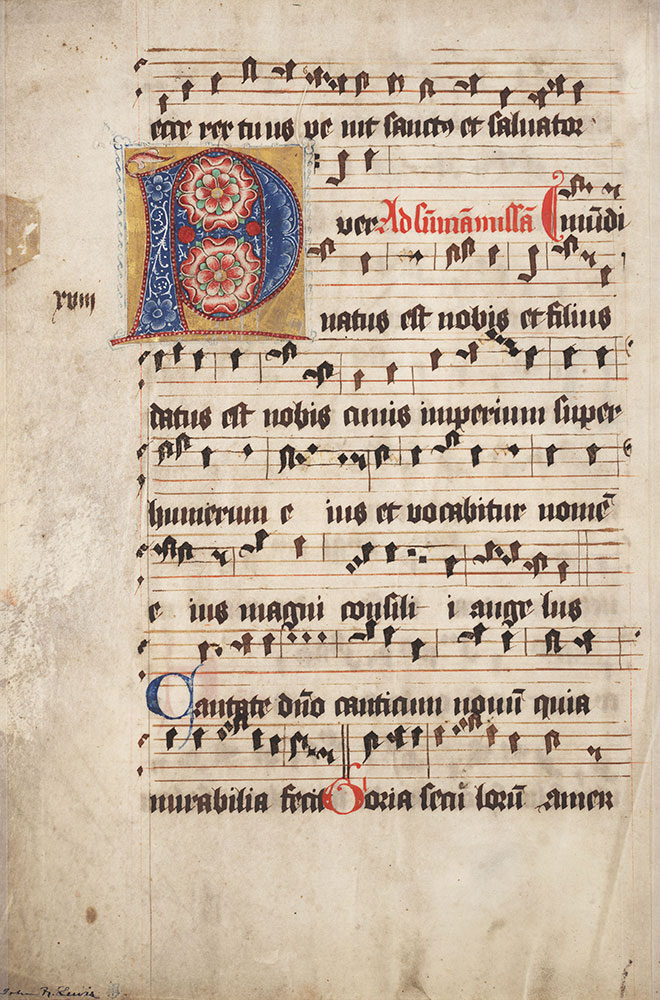 ecce rex tuus ve nit sanctꝰ et saluator
Puer Ad sūmā missā mūdi
xviii
natus est nobis et filius
datus est nobis cuius imperium super
humerum e ius et vocabitur nomē
e ius magni consili i ange lus
Cantate dño canticum nouū quia
mirabilia fecit Goria secu lorū amen
Lewis